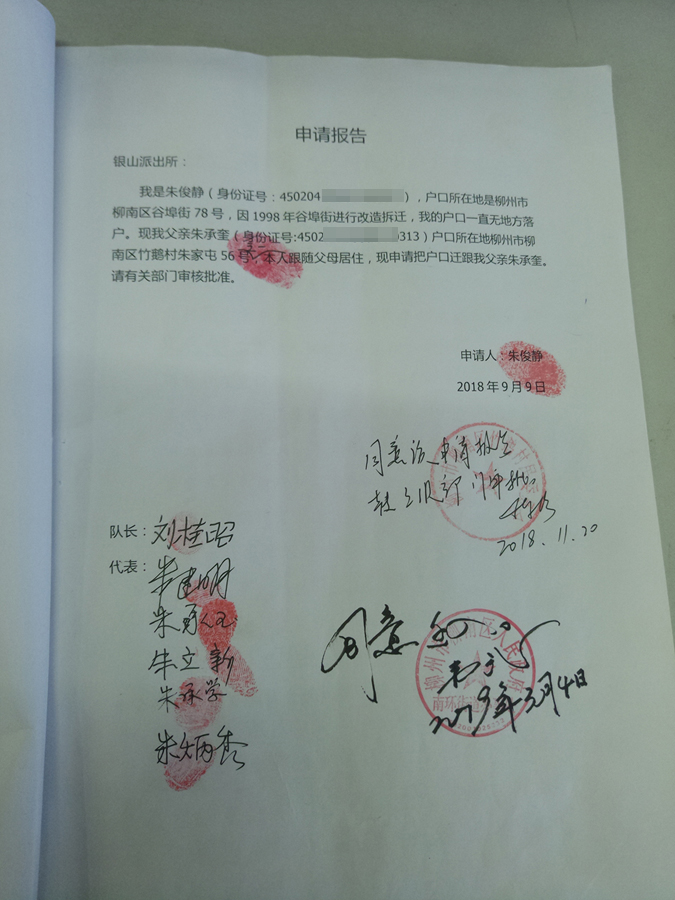 申请报告
银山派出所：
我是朱俊静（身份证号：450204 ），户口所在地是柳州市
柳南区谷埠街 78 号，因 1998 年谷埠街进行改造拆迁，我的户口一直无地方落
户。现我父亲朱承奎（身份证号:4502 313）户口所在地柳州市柳
南区竹鹅村朱家屯 56 号，本人跟随父母居住，现申请把户口迁跟我父亲朱承奎。
请有关部门审核批准。
申请人：朱俊静
2018 年 9 月 9 日
同意该申请报告
2018.11.20
队长：刘桂昭
代表：朱建明
朱立新
朱承学
朱炳
同意
2019年元月4日
柳州市 区人民政府
南环街道